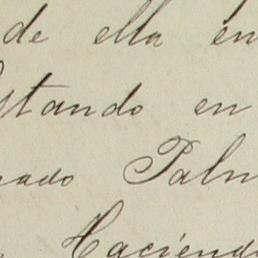 de ella en
stando en
nado Palm
Haciend